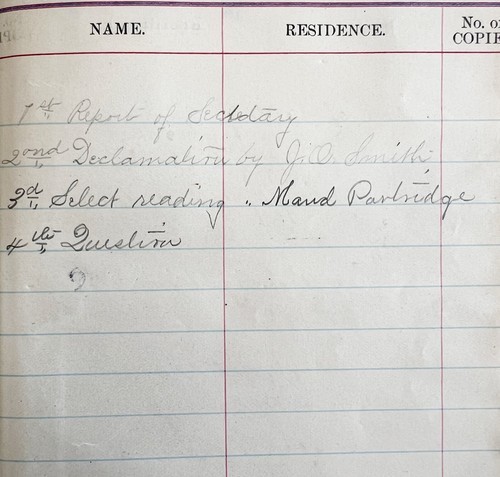 NAME. RESIDENCE. No. of COPIE
1st Report of Secretary
2ond Declamation by J. O. Smith
3d Select reading " Maud Partridge
4th Question